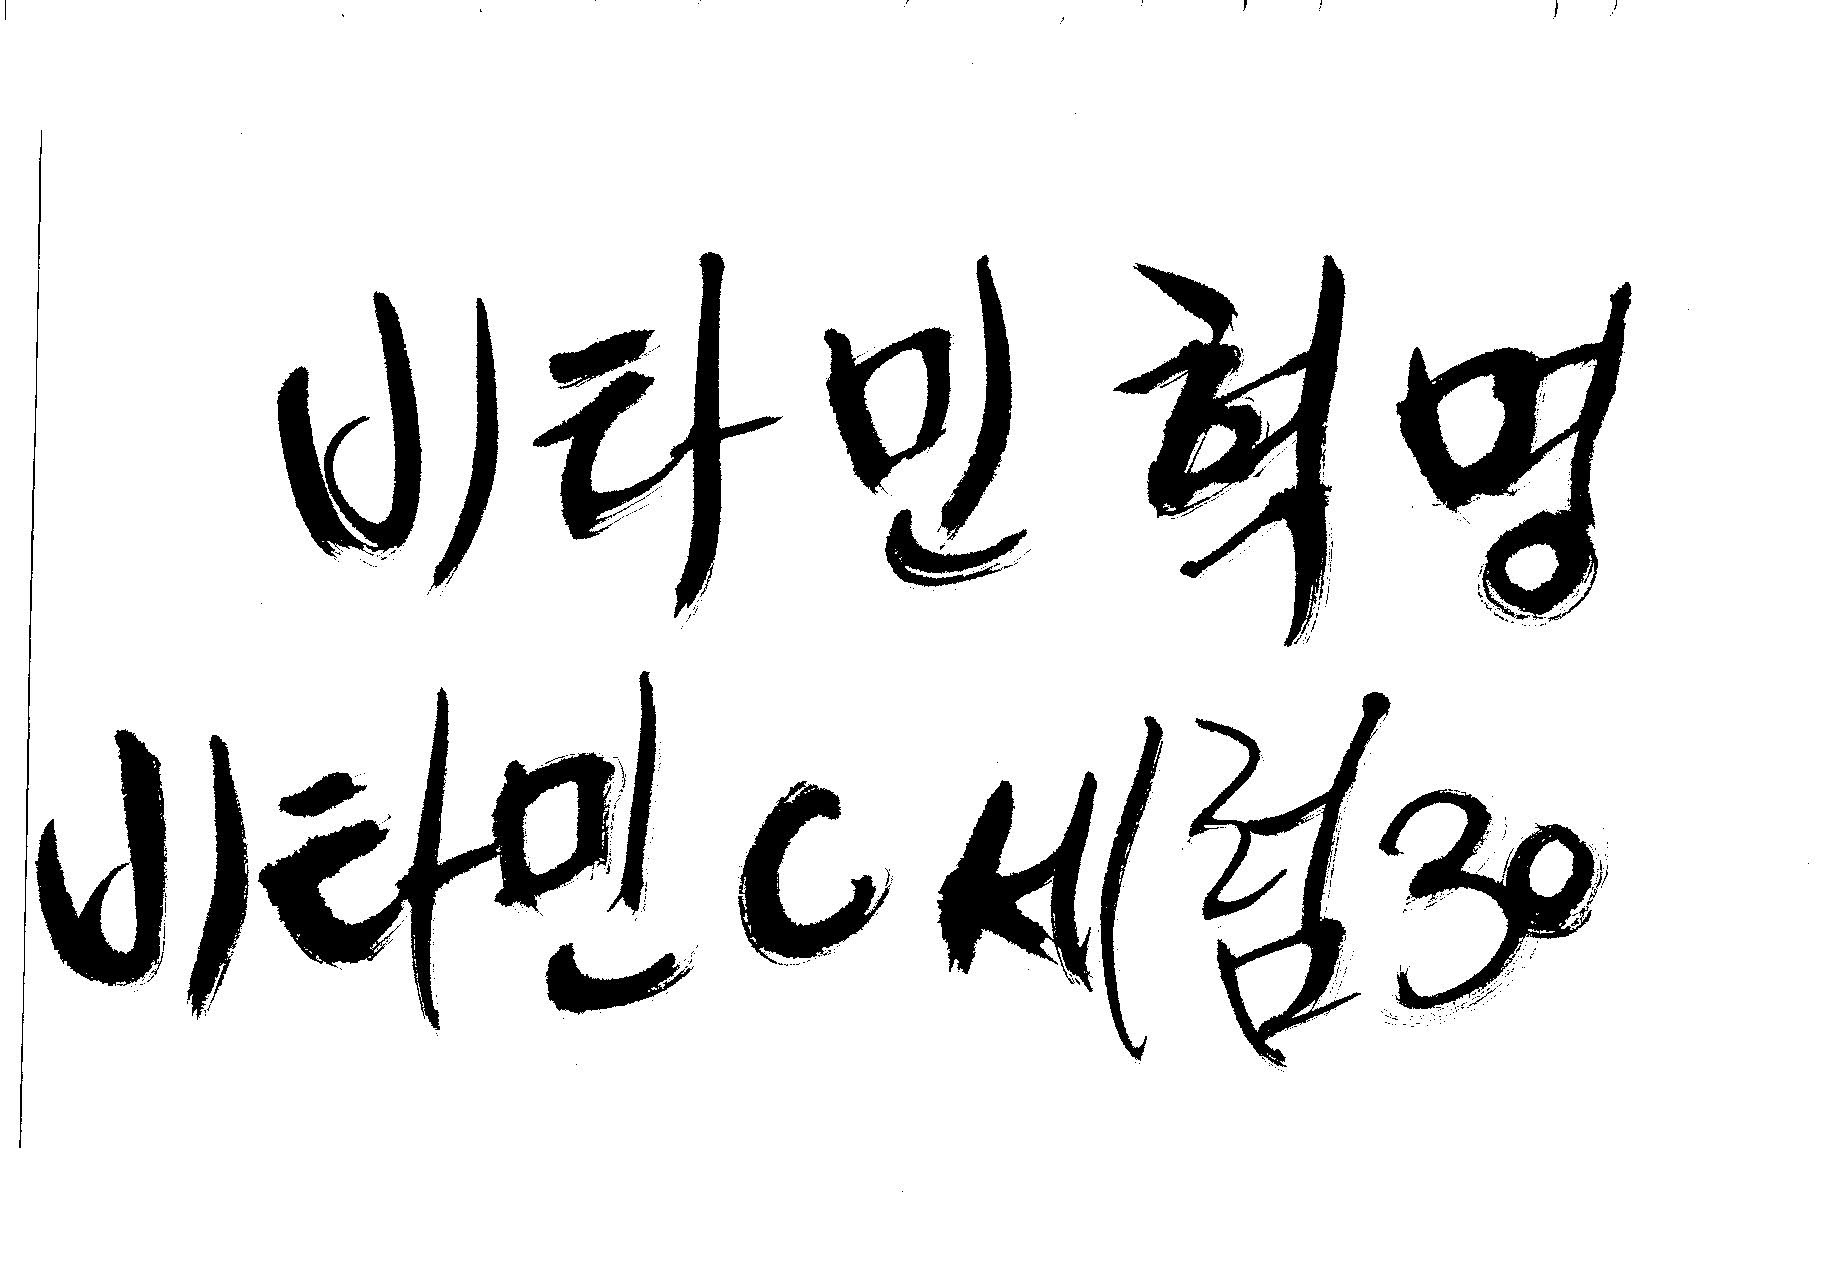 비타민 혁명
비타민 C 세럼 30